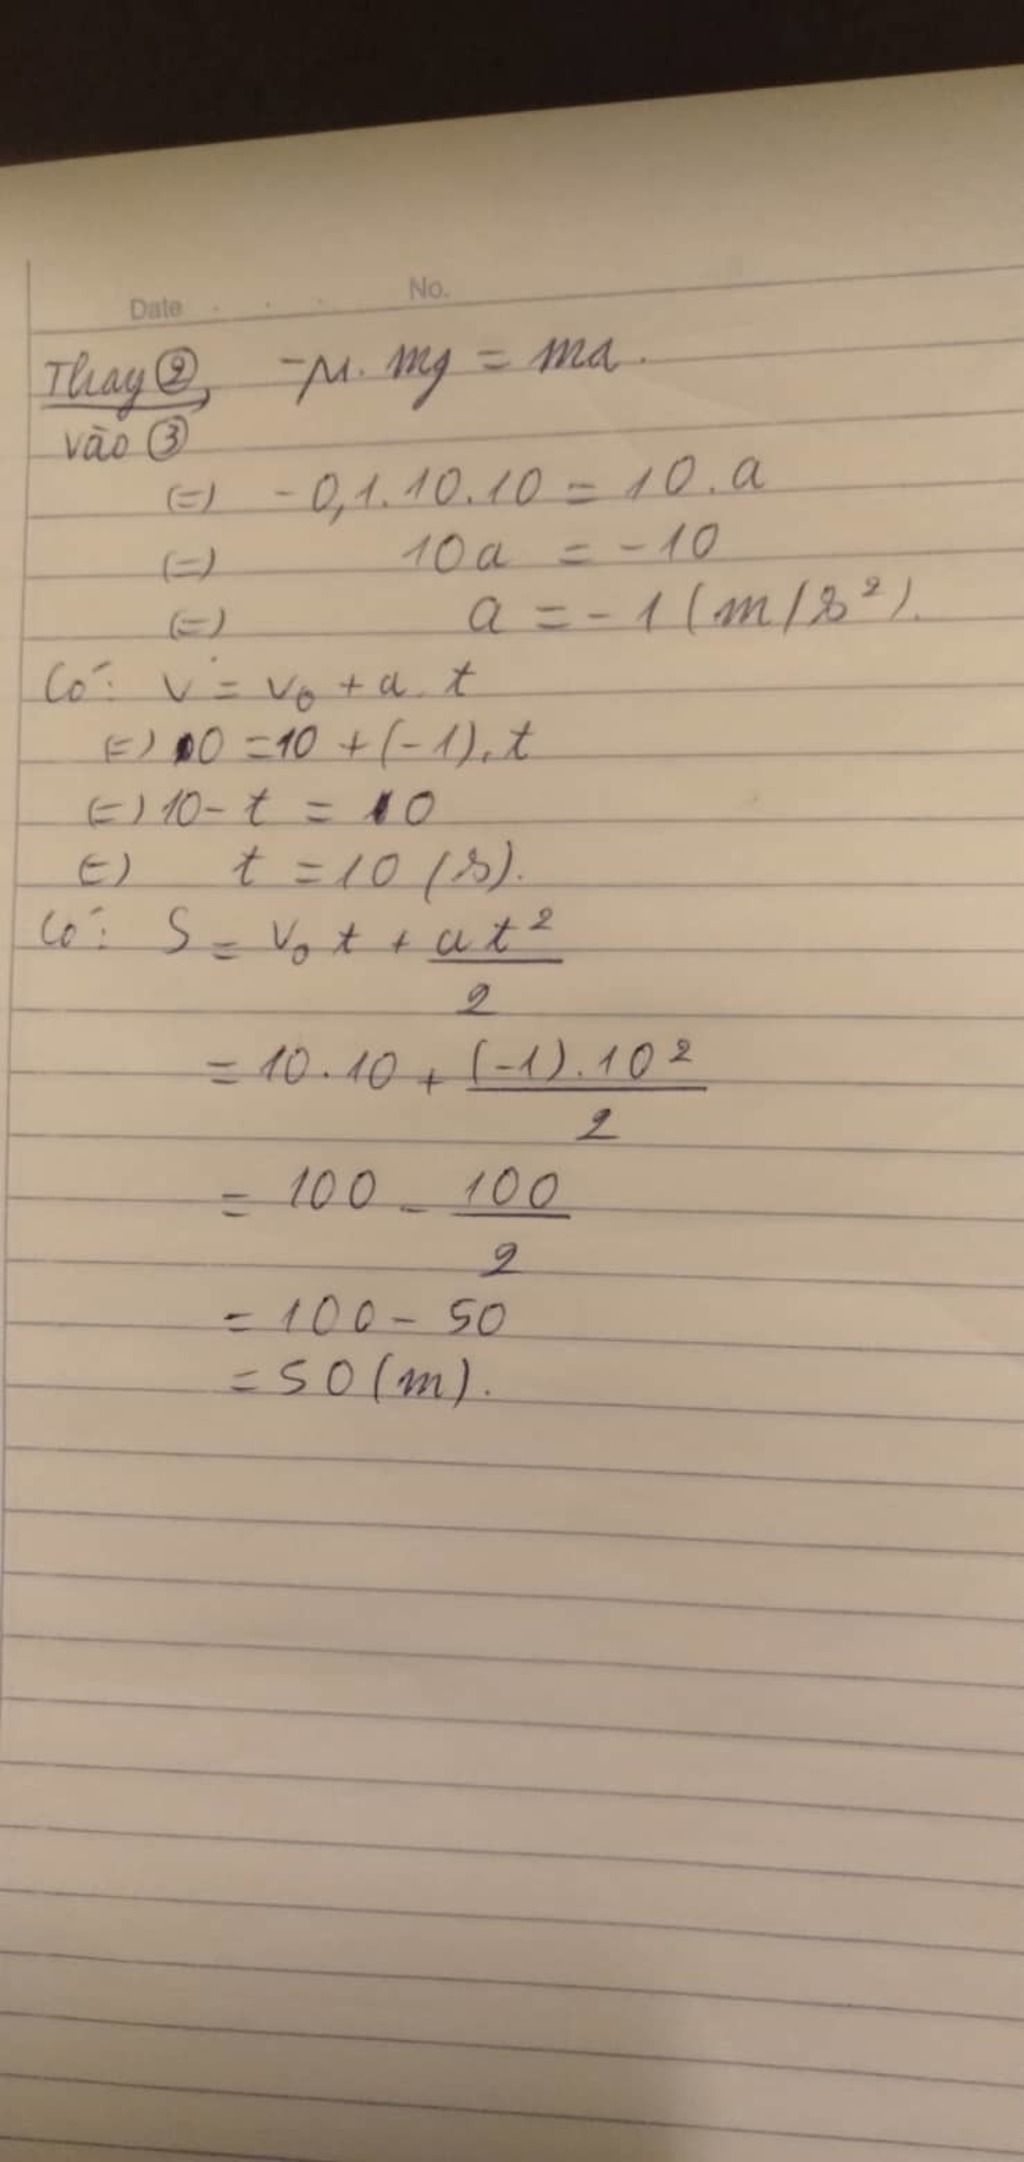 Date No.
Thay ②, -μ. mg = ma.
vào ③
(=) -0,1.10.10 = 10.a
(=) 10a = -10
(=) a = -1 (m/s²).
Có: v = v₀ + a. t
(=) 0 = 10 + (-1). t
(=) 10 - t = 0
(=) t = 10 (s).
Có: S = v₀ t + at²/2
= 10.10 + (-1).10²/2
= 100 - 100/2
= 100 - 50
= 50 (m).